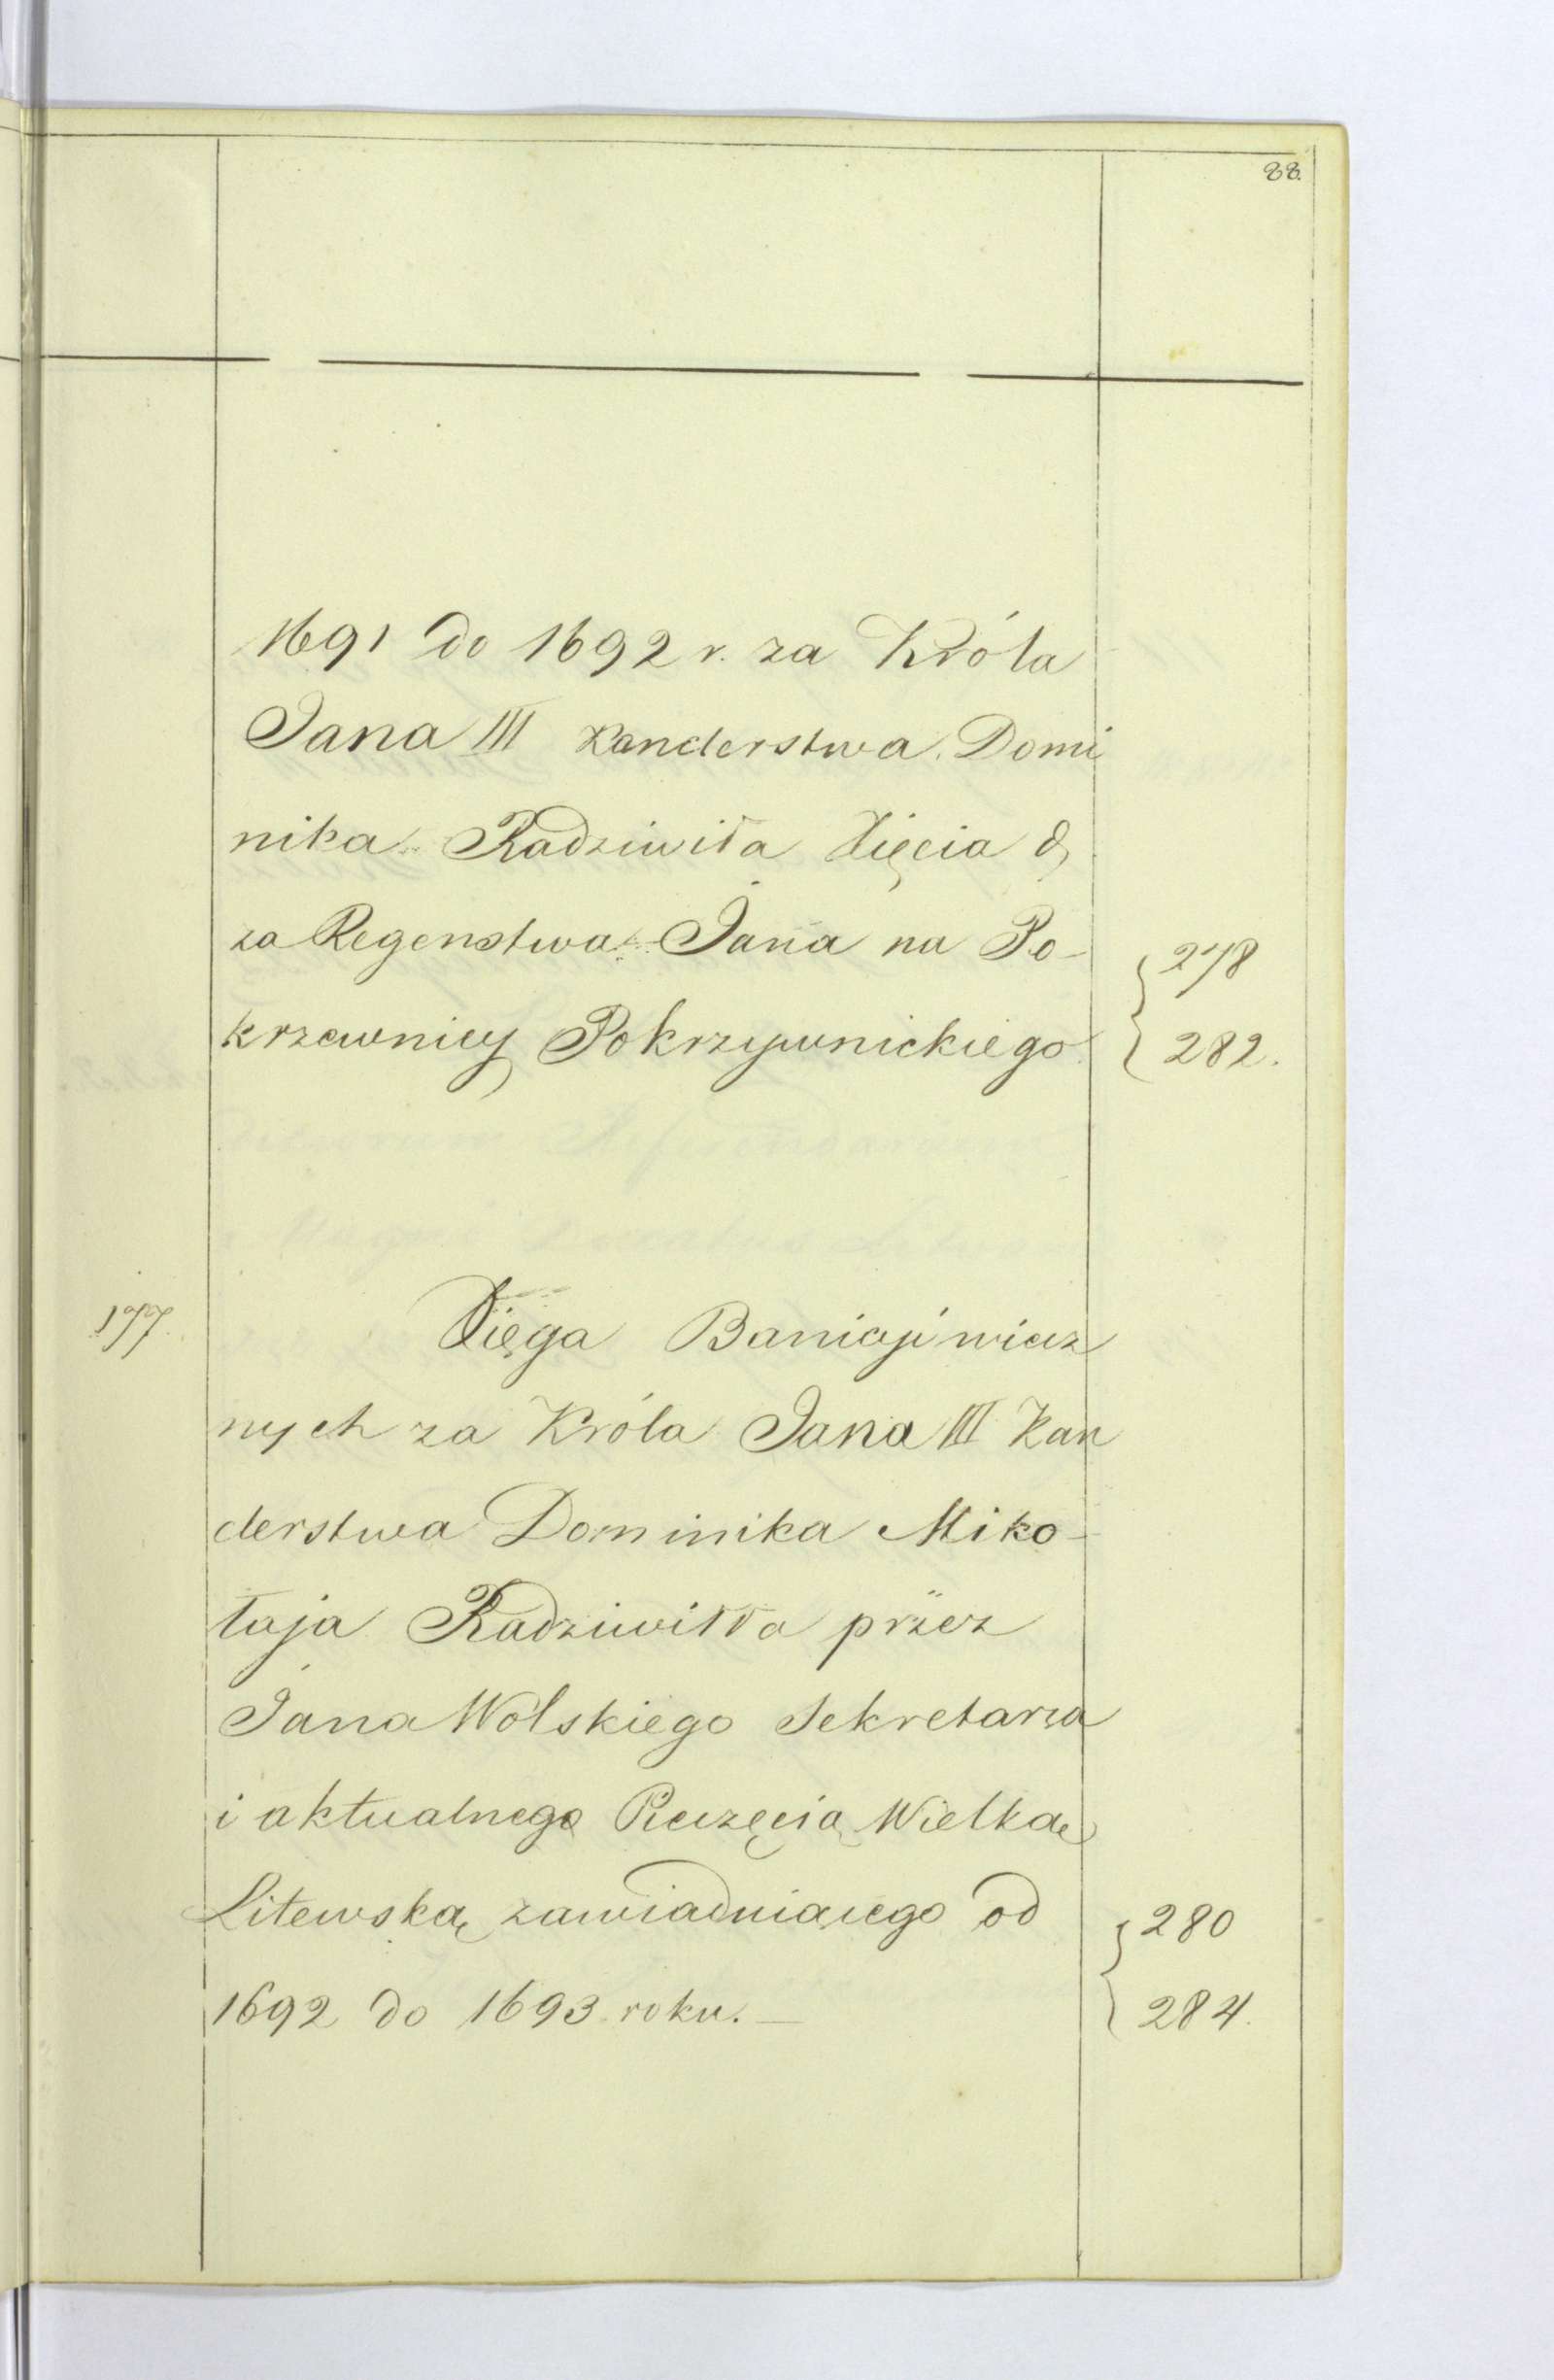 88.
1691 do 1692 r. za Króla
Jana III Kanclerstwa Domi
nika Radziwiła Xięcia &
za Regenstwa Jana na Po-
krzewnicy Pokrzywnickiego
{ 278
{ 282.
177.
Xięga
nych za Króla Jana III Kan
clerstwa Dominika Miko-
łaja Radziwiłła przez
Jana Wolskiego Sekretarza
i aktualnego Pieczęcią Wielką
Litewską od
1692 do 1693 roku. —
{ 280
{ 284.